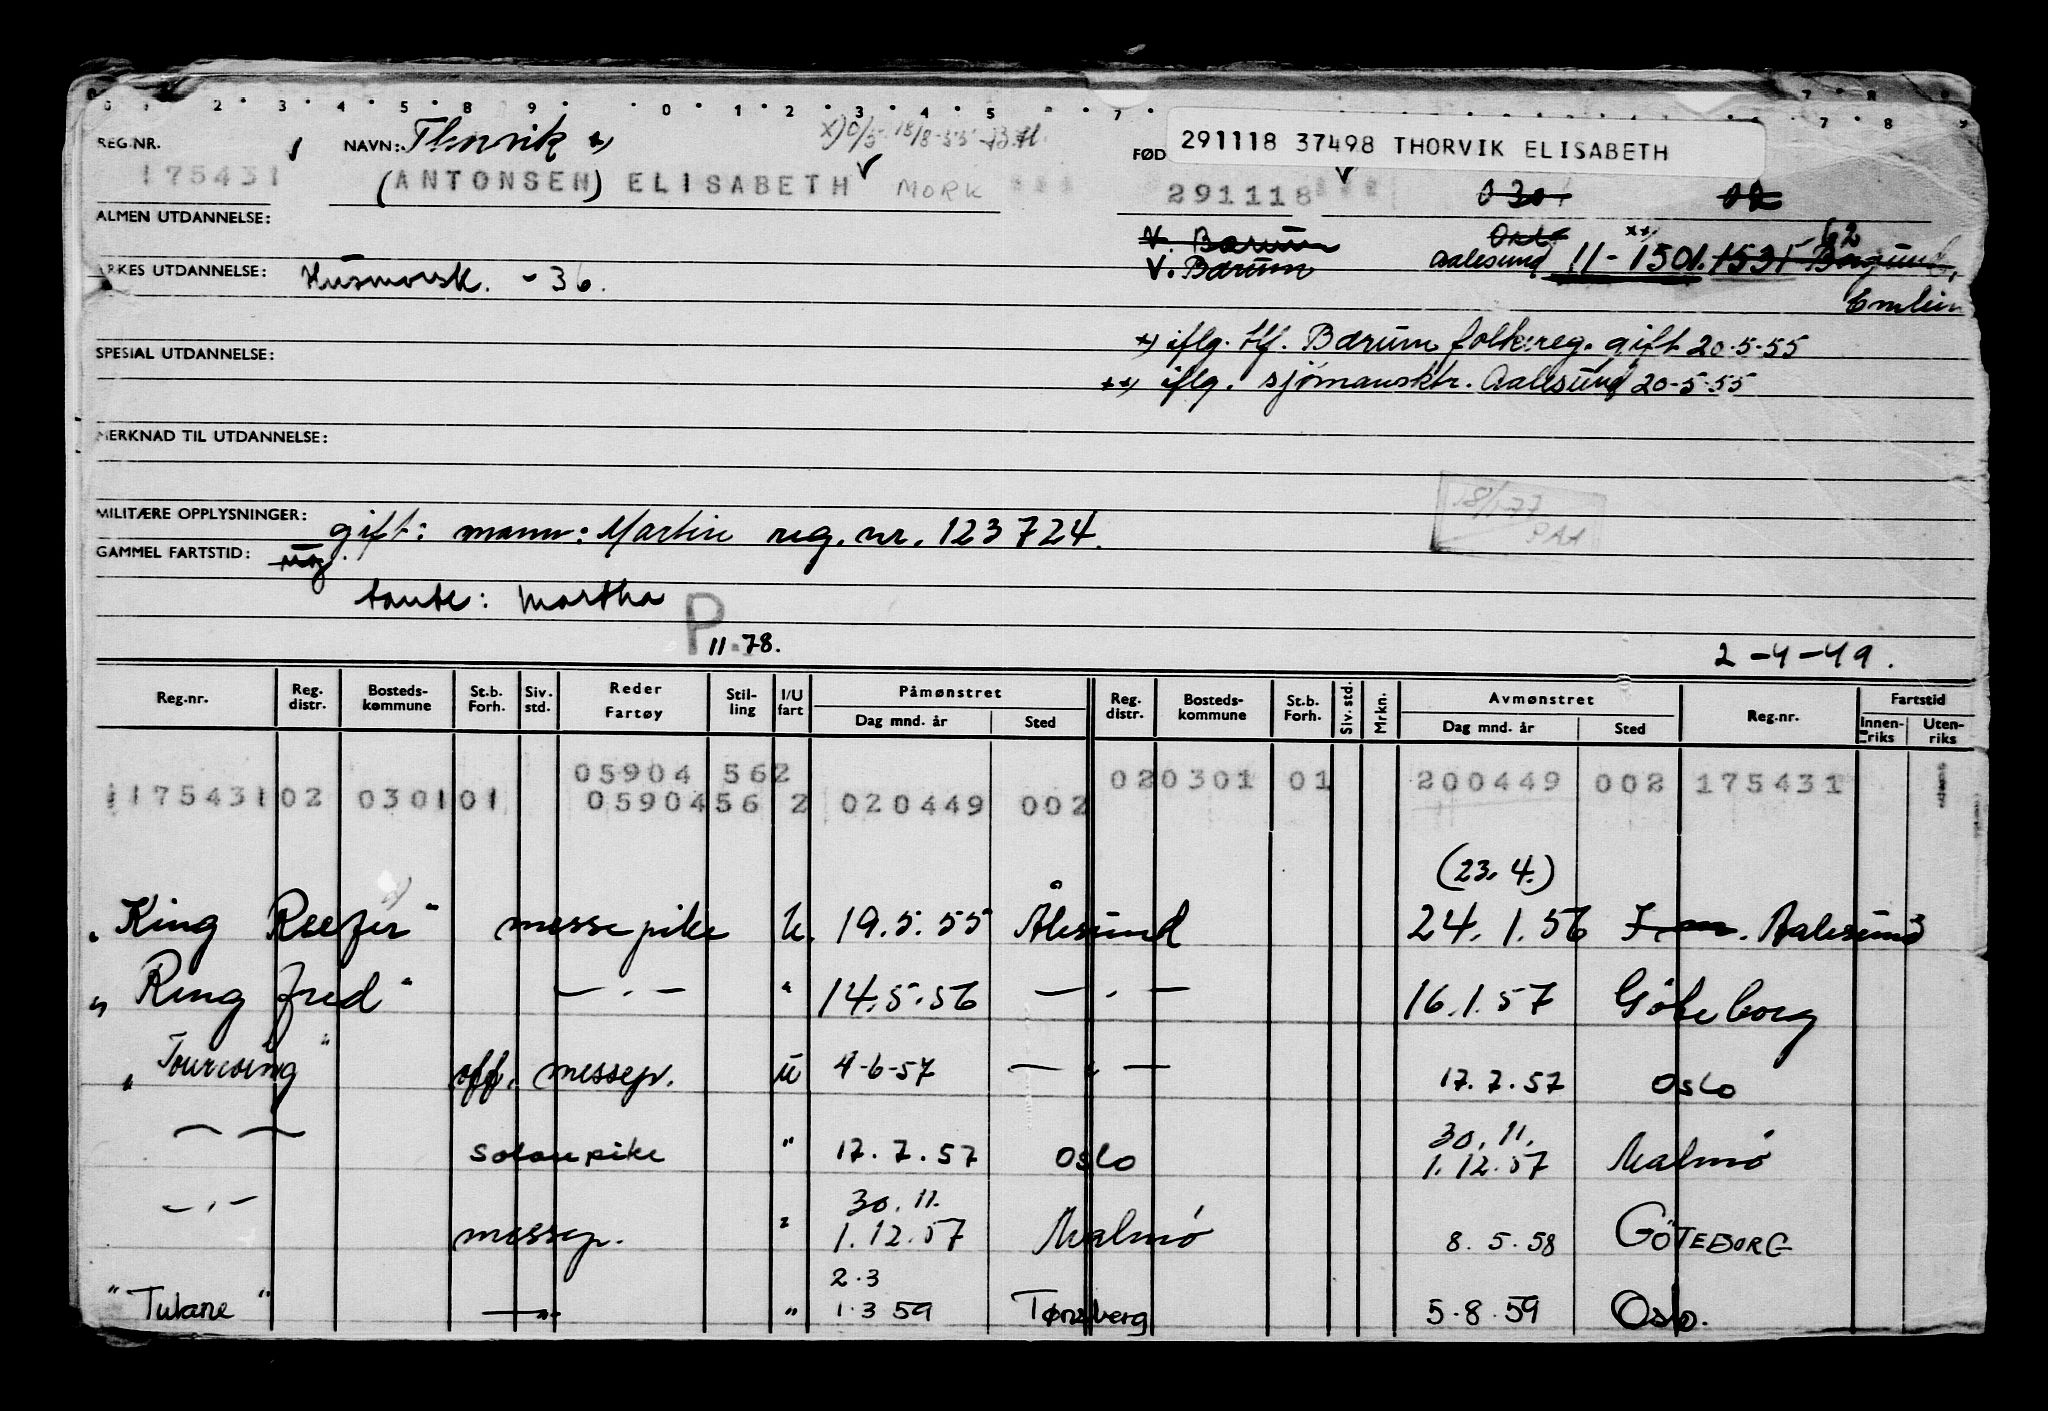 REG.NR. 175431
NAVN: Thorvik x)
291118 37498 THORVIK ELISABETH
FØD
(ANTONSEN) ELISABETH MORK
291118 030 02
ALMEN UTDANNELSE:
V. Bærum Oslo xx) 62
YRKES UTDANNELSE: Husmorsk. -36.
V. Bærum Aalesund 11-1501. 1531 Borgund,
Emlein
x) iflg. tlf. Bærum folkereg. gift 20-5-55
SPESIAL UTDANNELSE:
xx) iflg. sjømansktr. Aalesund 20-5-55
MERKNAD TIL UTDANNELSE:
18/1-77
PAA
MILITÆRE OPPLYSNINGER: gift: mann: Martin reg. nr. 123724.
GAMMEL FARTSTID: ug.
tante: Martha
P 11.78.
2-4-49.
Reg.nr. Reg. distr. Bosteds-kommune St.b. Forh. Siv. std. Reder Fartøy Stil-ling I/U fart Påmønstret Dag mnd. år Sted Reg. distr. Bosteds-kommune St.b. Forh. Siv. std. Mrkn. Avmønstret Dag mnd. år Sted Reg.nr. Fartstid Innen-riks Uten-riks
05904 562 020301 01 200449 002 175431 1
175431 02 0301 01 05904 56 2 020449 002
(23.4.)
"King Reefer" messepike U. 19.5.55 Ålesund 24.1.56 Aalesund
"Ringfred" — " — " 14.5.56 — " — 16.1.57 Göteborg
"Tourcoing" off. messep. u 4-6-57 — " — 17.7.57 Oslo
30.11.
— " — salonpike " 17.7.57 Oslo 1.12.57 Malmø
30.11.
— " — messep. " 1.12.57 Malmö 8.5.58 GÖTEBORG
2.3
"Tulane" — " — " 1.3 59 Tønsberg 5.8.59 Oslo.